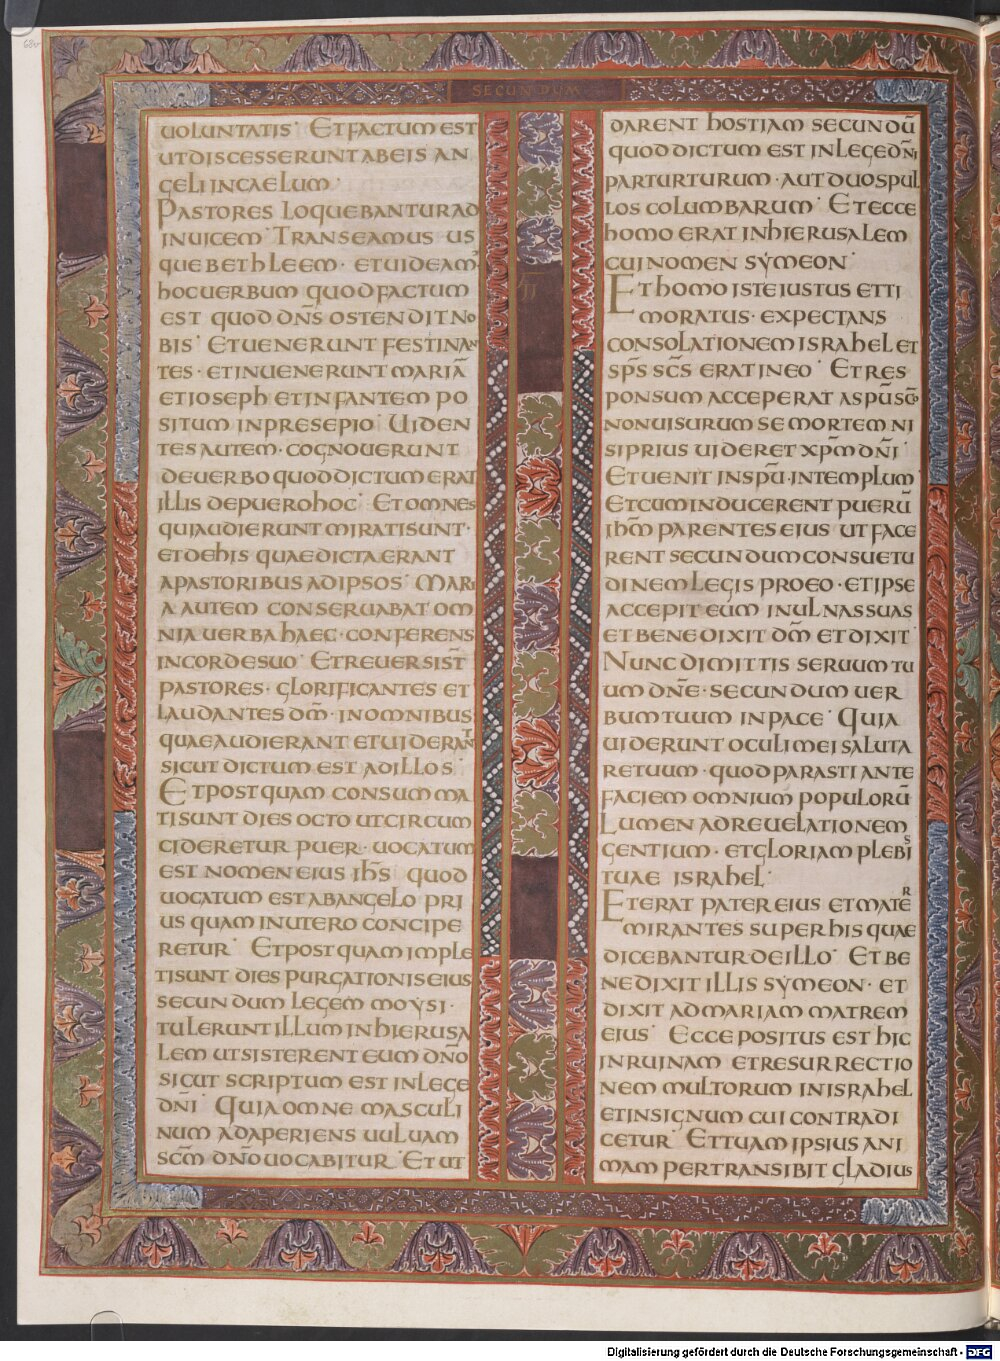 68v
SECUNDUM
UOLUNTATIS· ET FACTUM EST
UT DISCESSERUNT AB EIS AN
GELI IN CAELUM·
PASTORES LOQUEBANTUR AD
INUICEM· TRANSEAMUS US
QUE BETHLEEM· ET UIDEAM᷒
HOC UERBUM QUOD FACTUM
EST QUOD DN̄S OSTENDIT NO
BIS· ET UENERUNT FESTINAN
TES· ET INUENERUNT MARIĀ
ET IOSEPH ET INFANTEM PO
SITUM IN PRESEPIO· UIDEN
TES AUTEM· COGNOUERUNT
DE UERBO QUOD DICTUM ERAT
ILLIS DE PUERO HOC· ET OMNES
QUI AUDIERUNT MIRATI SUNT·
ET DE HIS QUAE DICTA ERANT
A PASTORIBUS AD IPSOS· MARI
A AUTEM CONSERUABAT OM
NIA UERBA HAEC· CONFERENS
IN CORDE SUO· ET REUERSI SN̄T
PASTORES· GLORIFICANTES ET
LAUDANTES DM̄· IN OMNIBUS
QUAE AUDIERANT ET UIDERANT
SICUT DICTUM EST AD ILLOS·
ET POSTQUAM CONSUMMA
TI SUNT DIES OCTO UT CIRCUM
CIDERETUR PUER· UOCATUM
EST NOMEN EIUS IHS̄ QUOD
UOCATUM EST AB ANGELO PRI
US QUAM IN UTERO CONCIPE
RETUR· ET POSTQUAM IMPLE
TI SUNT DIES PURGATIONIS EIUS
SECUNDUM LEGEM MOYSI·
TULERUNT ILLUM IN HIERUSA
LEM UT SISTERENT EUM DN̄O
SICUT SCRIPTUM EST IN LEGE
DN̄I· QUIA OMNE MASCULI
NUM ADAPERIENS UULUAM
SCM̄ DN̄O UOCABITUR· ET UT
DARENT HOSTIAM SECUNDŪ
QUOD DICTUM EST IN LEGE DN̄I
PAR TURTURUM· AUT DUOS PUL
LOS COLUMBARUM· ET ECCE
HOMO ERAT IN HIERUSALEM
CUI NOMEN SYMEON·
ET HOMO ISTE IUSTUS ET TI
MORATUS· EXPECTANS
CONSOLATIONEM ISRAHEL ET
SPS̄ SCS̄ ERAT IN EO· ET RES
PONSUM ACCEPERAT A SPŪ SCŌ
NON UISURUM SE MORTEM NI
SI PRIUS UIDERET XPM̄ DN̄I·
ET UENIT IN SPŪ· IN TEMPLUM
ET CUM INDUCERENT PUERŪ
IHM̄ PARENTES EIUS UT FACE
RENT SECUNDUM CONSUETU
DINEM LEGIS PRO EO· ET IPSE
ACCEPIT EUM IN ULNAS SUAS
ET BENEDIXIT DM̄ ET DIXIT·
NUNC DIMITTIS SERUUM TU
UM DN̄E· SECUNDUM UER
BUM TUUM IN PACE· QUIA
UIDERUNT OCULI MEI SALUTA
RE TUUM· QUOD PARASTI ANTE
FACIEM OMNIUM POPULORŪ
LUMEN AD REUELATIONEM
GENTIUM· ET GLORIAM PLEBIS
TUAE ISRAHEL·
ET ERAT PATER EIUS ET MATĒR
MIRANTES SUPER HIS QUAE
DICEBANTUR DE ILLO· ET BE
NEDIXIT ILLIS SYMEON· ET
DIXIT AD MARIAM MATREM
EIUS· ECCE POSITUS EST HIC
IN RUINAM ET RESURRECTIO
NEM MULTORUM IN ISRAHEL
ET IN SIGNUM CUI CONTRADI
CETUR· ET TUAM IPSIUS ANI
MAM PERTRANSIBIT GLADIUS
Digitalisierung gefördert durch die Deutsche Forschungsgemeinschaft - DFG